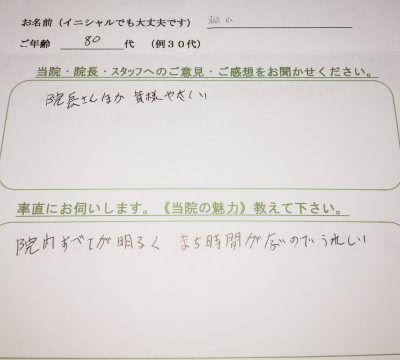 お名前（イニシャルでも大丈夫です）
ご年齢 80 代 （例３０代）
当院・院長・スタッフへのご意見・ご感想をお聞かせください。
院長さんほか 皆様やさしい
率直にお伺いします。《当院の魅力》教えて下さい。
院内すべてが明るく まち時間がないのでうれしい